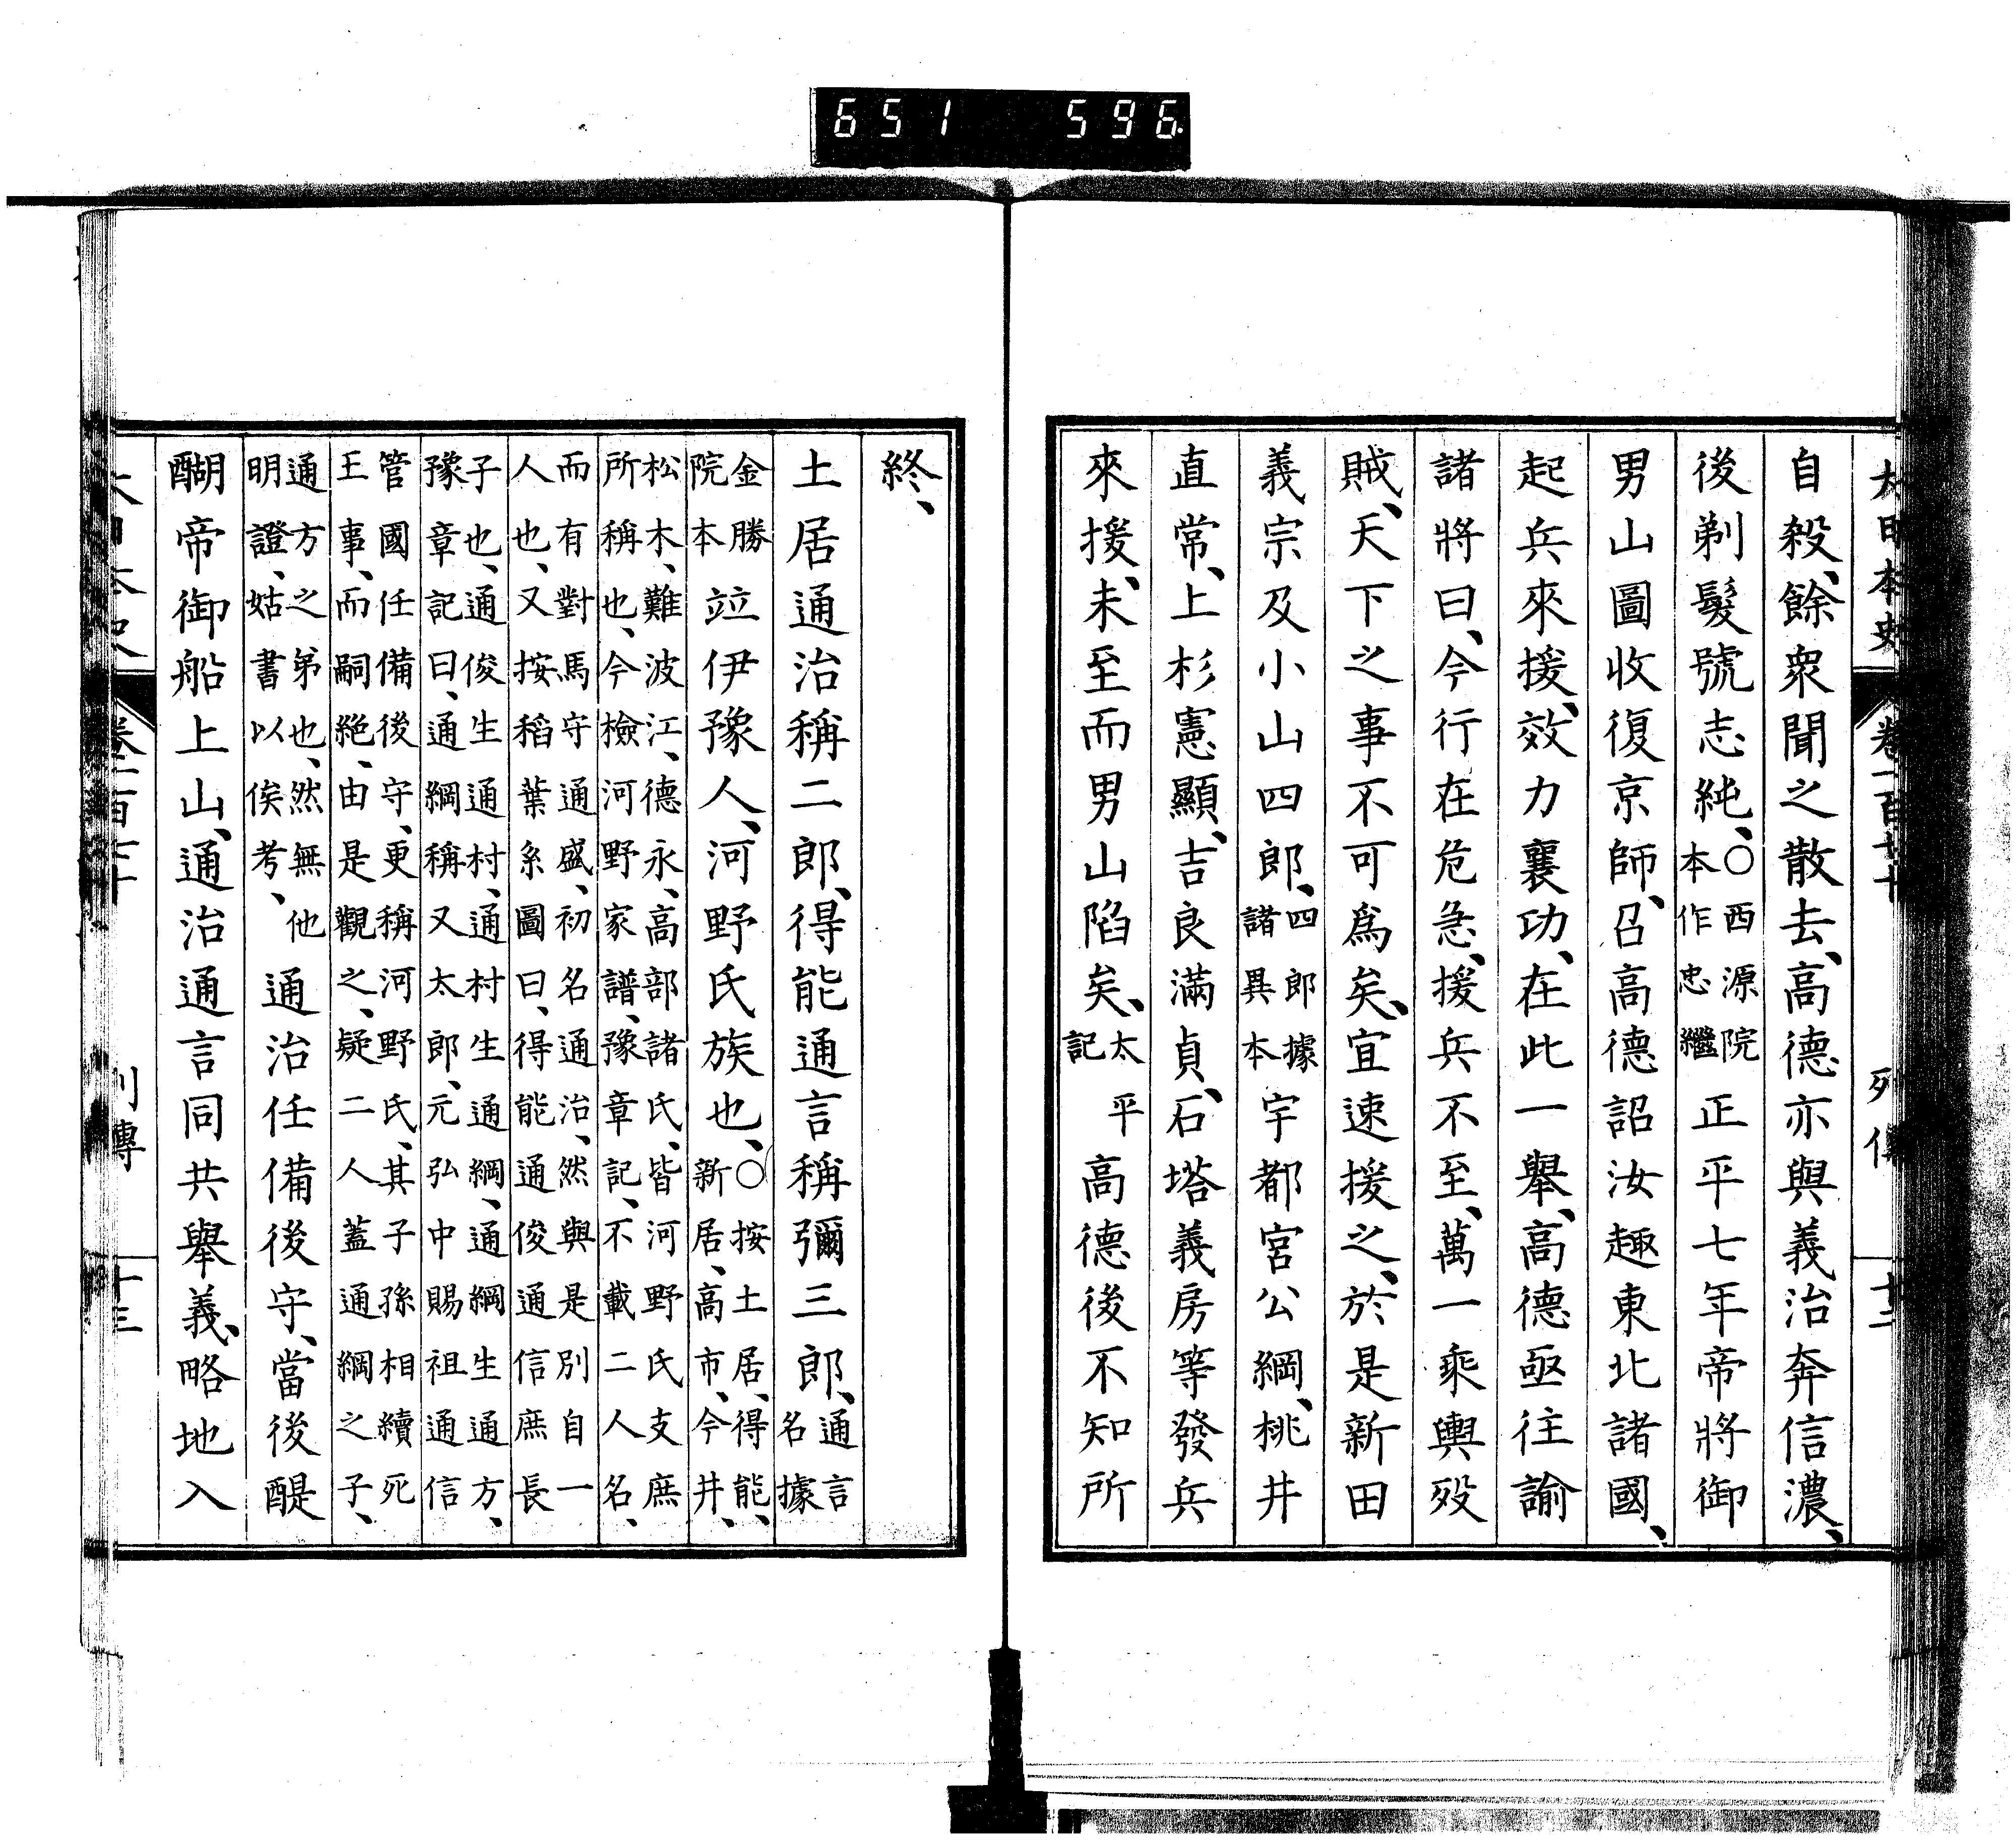 651 596
大日本史 卷一百七十 列傳 十二
自殺、餘衆聞之散去、高德亦與義治奔信濃、
後剃髮號志純、○西源院本作忠繼正平七年帝將御
男山圖收復京師、召高德詔汝趣東北諸國、
起兵來援、效力襄功、在此一舉、高德亟往諭
諸將曰、今行在危急、援兵不至、萬一乘輿歿
賊、天下之事不可爲矣、宜速援之、於是新田
義宗及小山四郎、四郎據諸異本宇都宮公綱、桃井
直常、上杉憲顯、吉良滿貞、石塔義房等發兵
來援、未至而男山陷矣、太平記高德後不知所
終、
土居通治稱二郎、得能通言稱彌三郎、通言名據
金勝院本竝伊豫人、河野氏族也、○按土居、得能、新居、高市、今井、
松木、難波江、德永、高部諸氏、皆河野氏支庶所稱也、今檢河野家譜、豫章記、不載二人名、
而有對馬守通盛、初名通治、然與是別自一人也、又按稻葉系圖曰、得能通俊通信庶長
子也、通俊生通村、通村生通綱、通綱生通方、豫章記曰、通綱稱又太郎、元弘中賜祖通信
管國任備後守、更稱河野氏、其子孫相續死王事、而嗣絶、由是觀之、疑二人蓋通綱之子、
通方之弟也、然無他明證、姑書以俟考、通治任備後守、當後醍
醐帝御船上山、通治通言同共舉義、略地入
大日本史 卷一百七十 列傳 十三